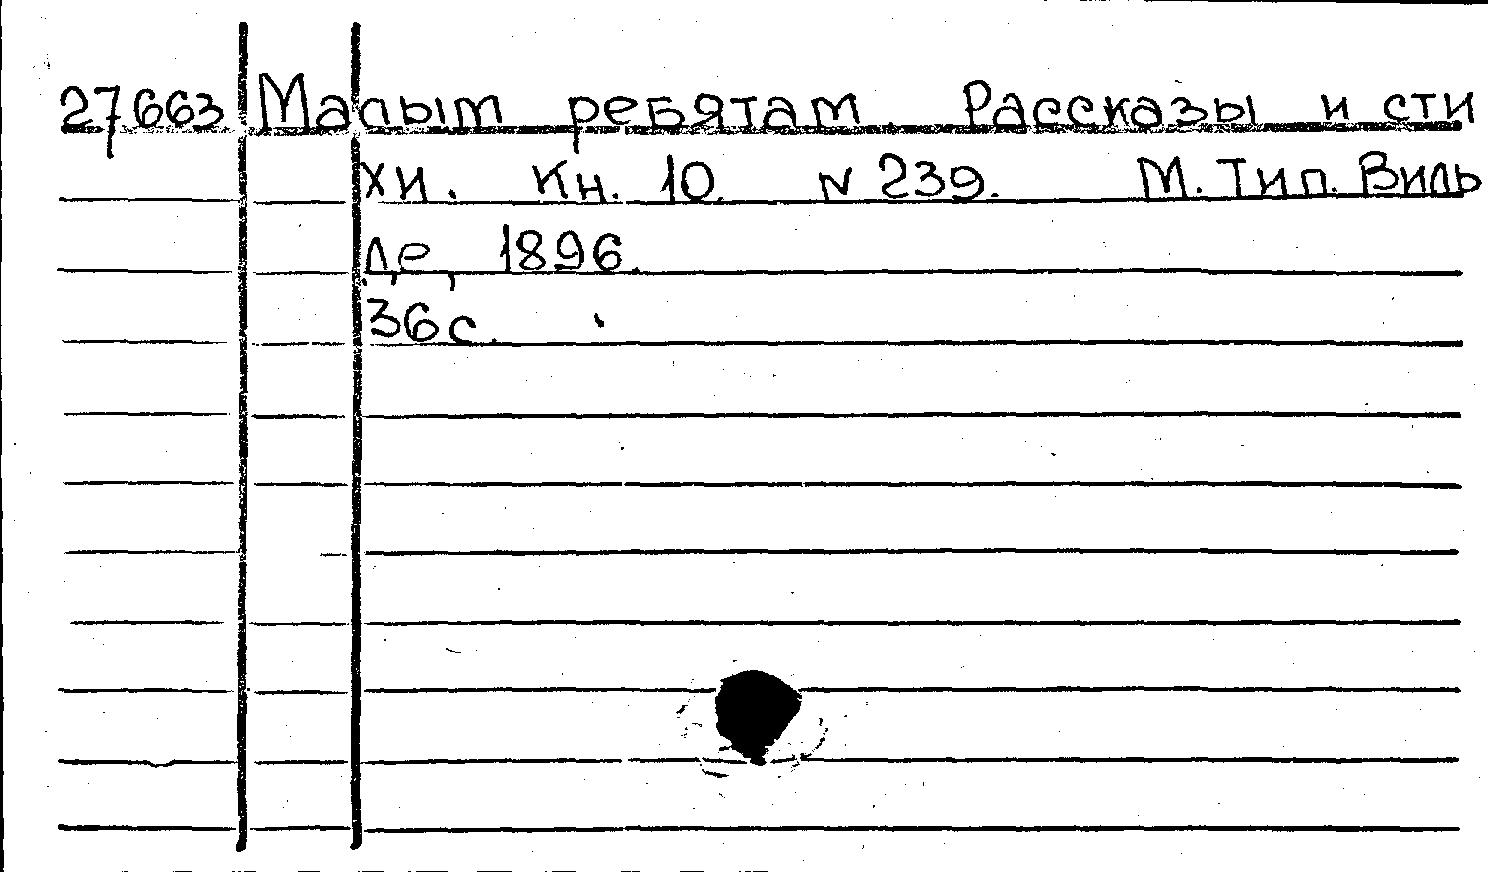 27663 Малым ребятам. Рассказы и сти
хи. Кн. 10. N 239. М. Тип. Виль
де, 1896.
36 с.